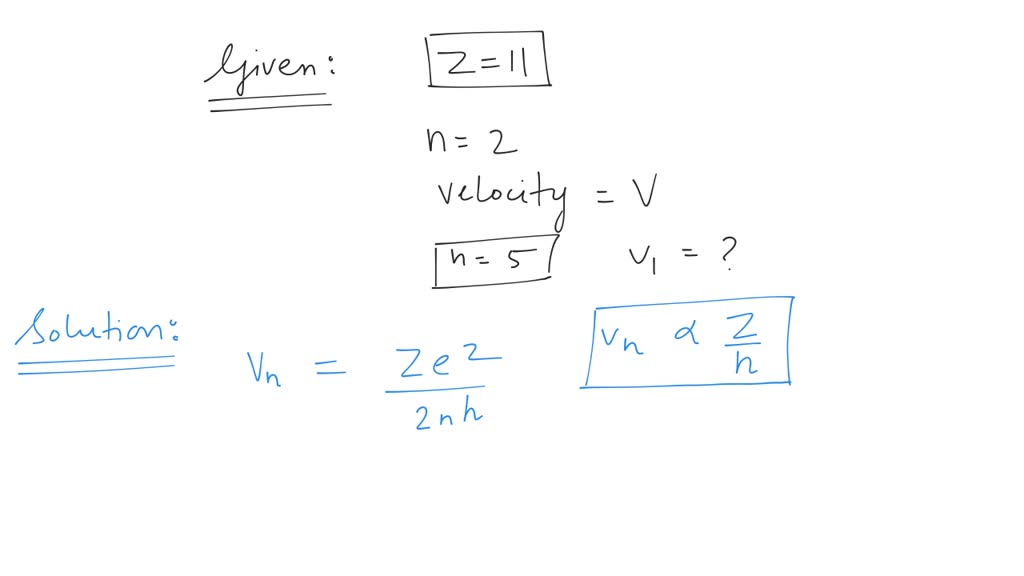 Given: Z = 11
n = 2
velocity = V
n = 5 v₁ = ?
Solution:
Vₙ = Ze² / 2nh vₙ ∝ Z / n